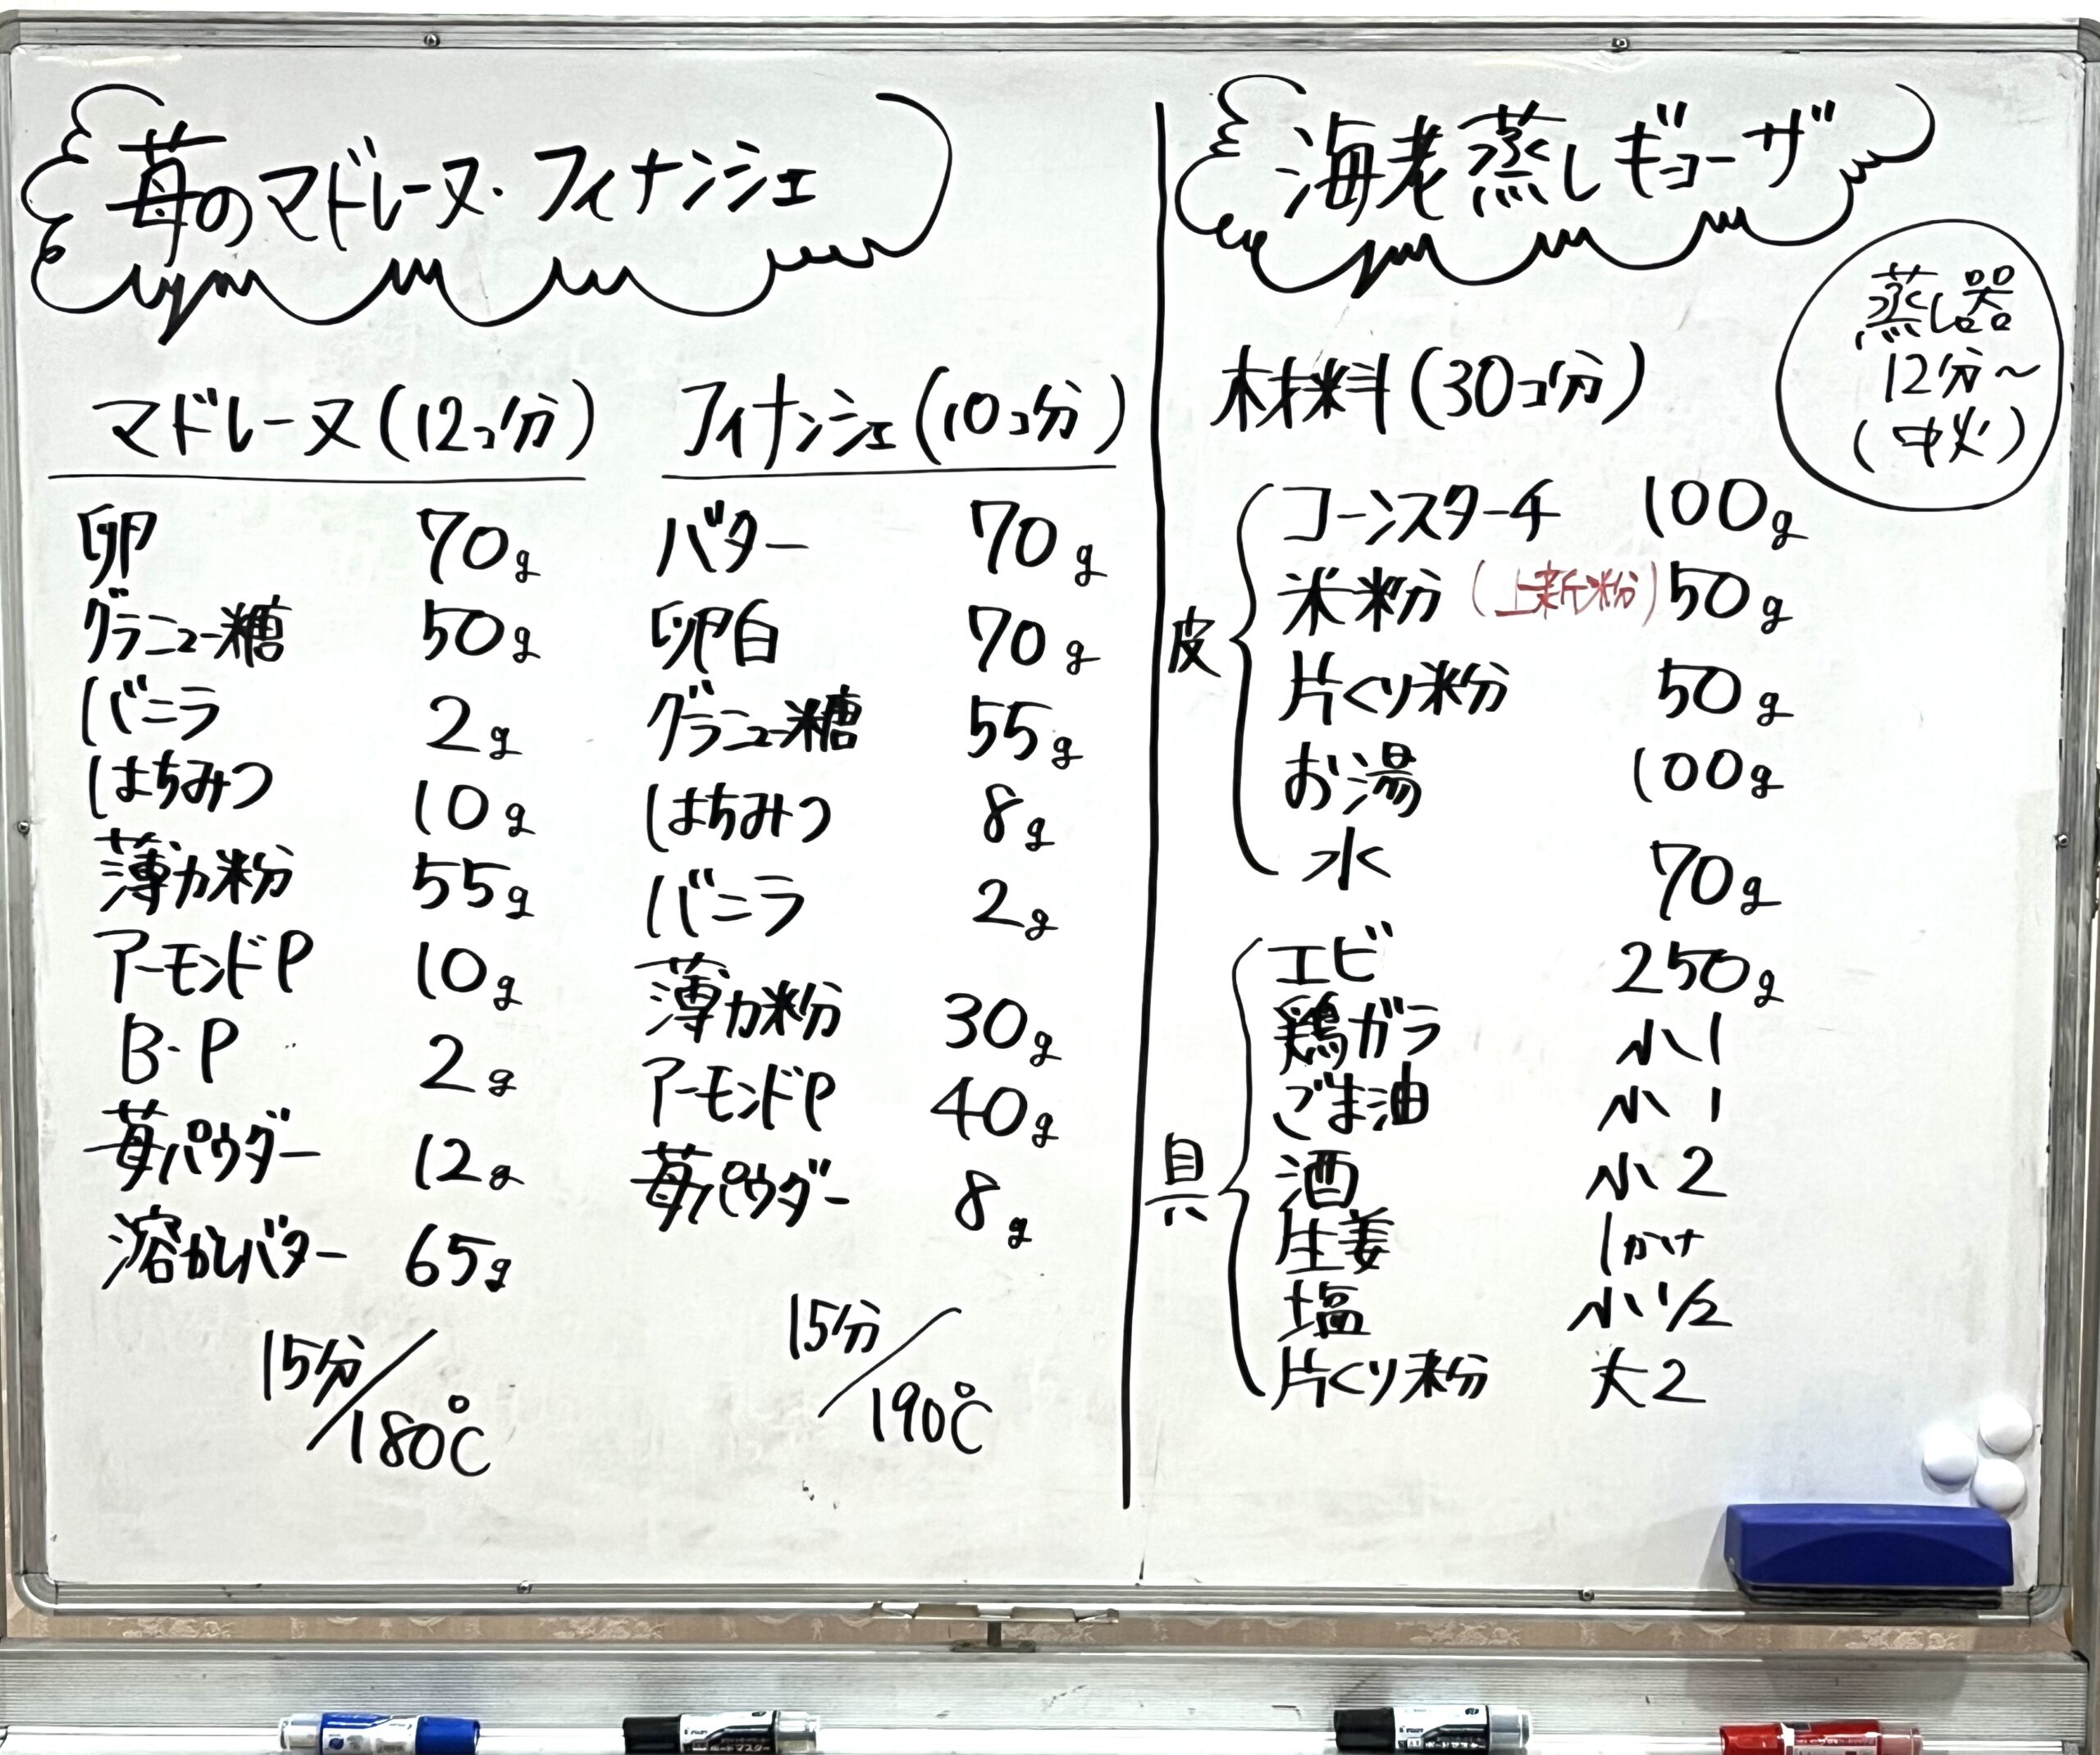 苺のマドレーヌ・フィナンシェ
マドレーヌ(12コ分)
卵 70g
グラニュー糖 50g
バニラ 2g
はちみつ 10g
薄力粉 55g
アーモンドP 10g
B・P 2g
苺パウダー 12g
溶かしバター 65g
15分/180℃
フィナンシェ(10コ分)
バター 70g
卵白 70g
グラニュー糖 55g
はちみつ 8g
バニラ 2g
薄力粉 30g
アーモンドP 40g
苺パウダー 8g
15分/190℃
海老蒸しギョーザ
蒸し器
12分〜
(中火)
材料(30コ分)
皮
コーンスターチ 100g
米粉(上新粉) 50g
片くり粉 50g
お湯 100g
水 70g
具
エビ 250g
鶏ガラ 小1
ごま油 小1
酒 小2
生姜 1かけ
塩 小1/2
片くり粉 大2